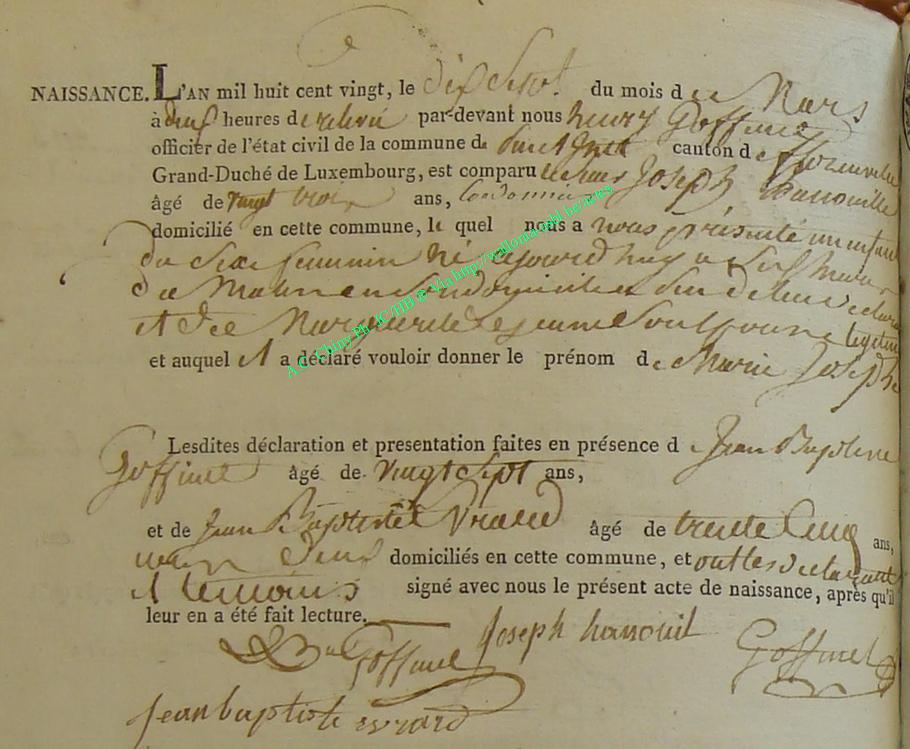 NAISSANCE. L'AN mil huit cent vingt, le dix Sept. du mois de Mars
à deux heures de relevé par-devant nous henry Goffinet
officier de l'état civil de la commune de canton de florenville
Grand-Duché de Luxembourg, est comparu Joseph hanouille
âgé de vingt trois ans, Cordonnier
domicilié en cette commune, le quel nous a nous présenté un enfant
du Sexe feminin né ce jourd'huy a Six heures
du Matin en Son domicile de luy declarant
et de Marguerite Lejeune Son Epouse legitime
et auquel il a déclaré vouloir donner le prénom de Marie Josephe
Lesdites déclaration et presentation faites en présence de Jean Baptiste
Goffinet âgé de vingt Sept ans,
et de Jean Baptiste Evrard âgé de trente Cinq ans,
deux domiciliés en cette commune, et ont les declarant
et temoins signé avec nous le présent acte de naissance, après qu'il
leur en a été fait lecture.
JB Goffinet Joseph hanouil Goffinet
jean baptiste evrard